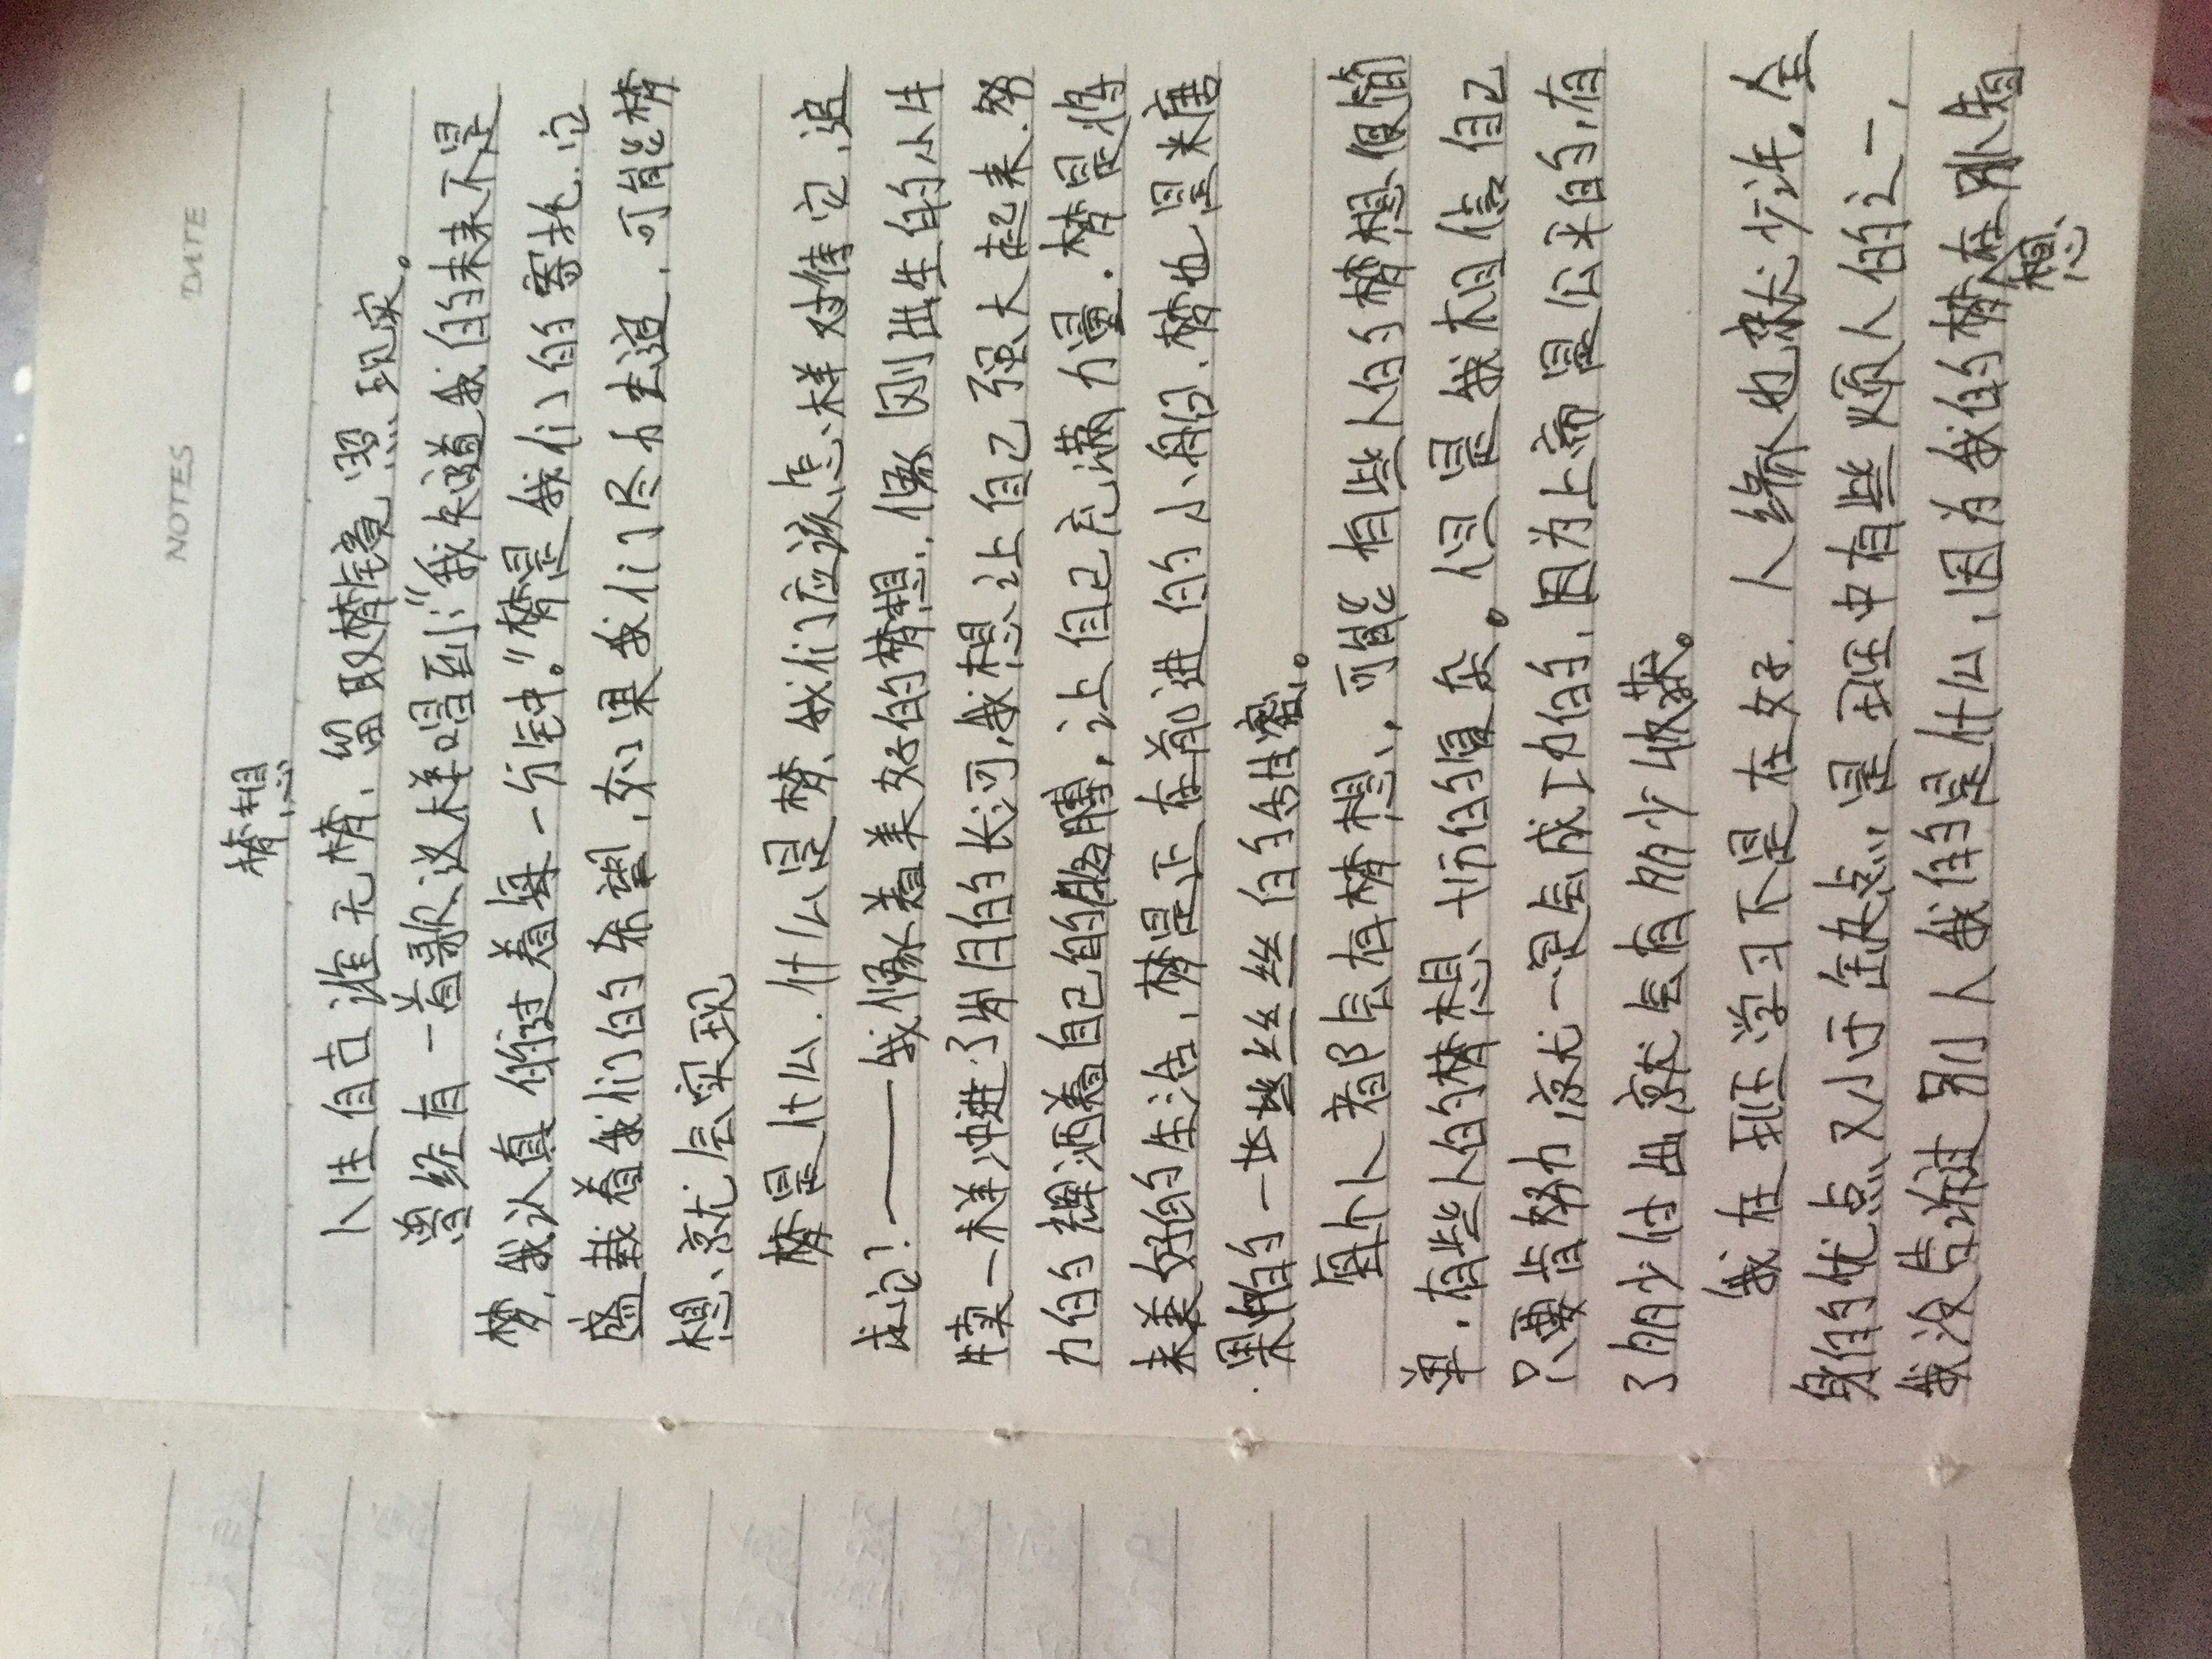 NOTES DATE
梦想
人生自古谁无梦，留取梦境照现实。
曾经有一首歌这样唱到："我知道我的未来不是
梦，我认真的过着每一分钟。"梦是我们的寄托，它
盛载着我们的希望，如果我们尽力去追，可能梦
想就会实现
梦是什么，什么是梦，我们应该怎样对待它，追
求它？——我像着美好的梦想，像刚出生的小牛
犊一样冲进了岁月的长河，我想让自己强大起来，努
力的挥洒着自己的，让自己充满力量，梦是将
来美好的生活，梦是正在前进的小船，梦也是米唐
果的一些丝丝的
每个人都会有梦想，可能有些人的梦想很简
单，有些人的梦想十历的复杂。但是我相信自己
只要肯努力就一定会成功的，因为上帝是公平的，有
了多少付出就会有多少收获。
我在班学习不是在好，人缘也
身的优点又小于缺点，是班中有些烦人的之一，
我没告诉过别人我的是什么，因为我的梦想在别人